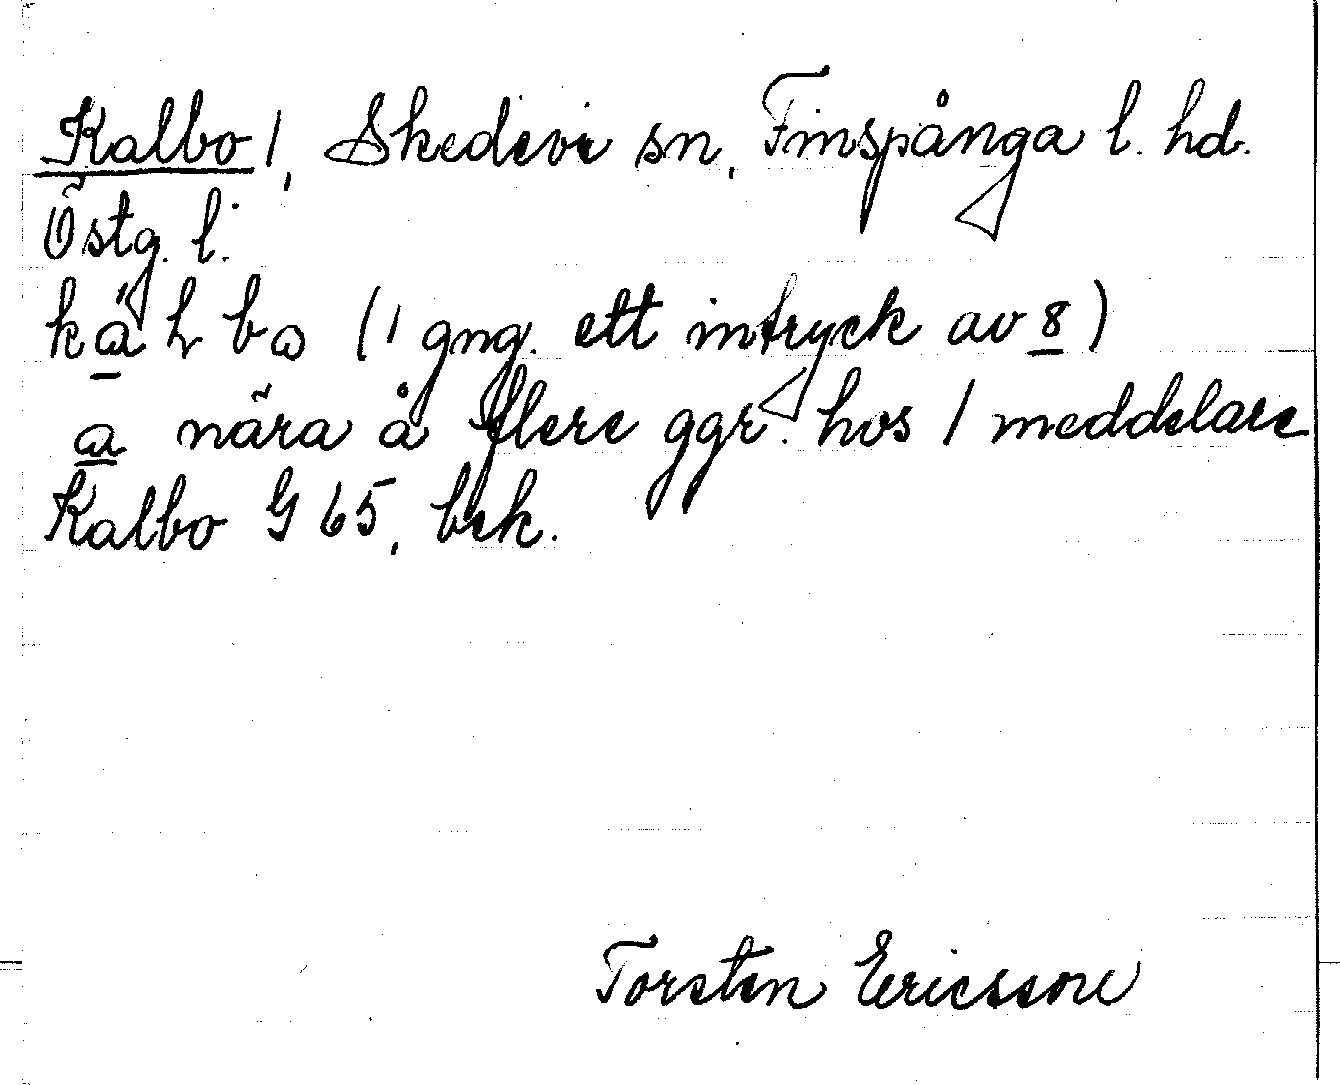 Kalbo 1, Skedevi sn, Finspånga l. hd.
Östg. l.
kählba (1 gng. ett intryck av 8)
a nära å flere ggr. hos 1 meddelare
Kalbo G 65, bek.
Torsten Ericsson